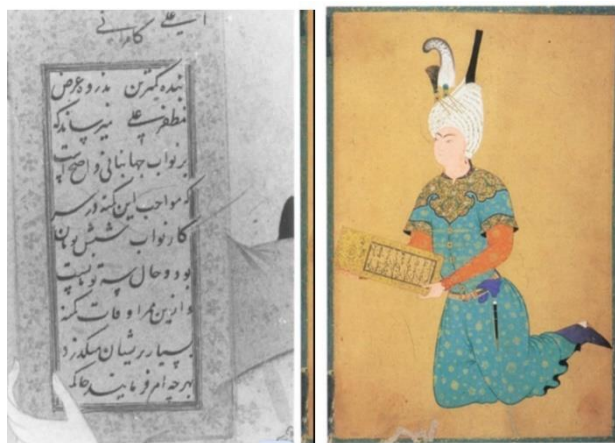 کامرانی
بنده کمترین بذروه عرض
مظفر علی میرساند که
بر نواب جهانبانی واضح است
که مواجب این کمینه در سر
کار نواب شش تومان
بود و حال سه تومانست
و ازین ممر اوقات کمینه
بسیار پریشان میگذرد
بهرچه امر فرمایند حاکمند